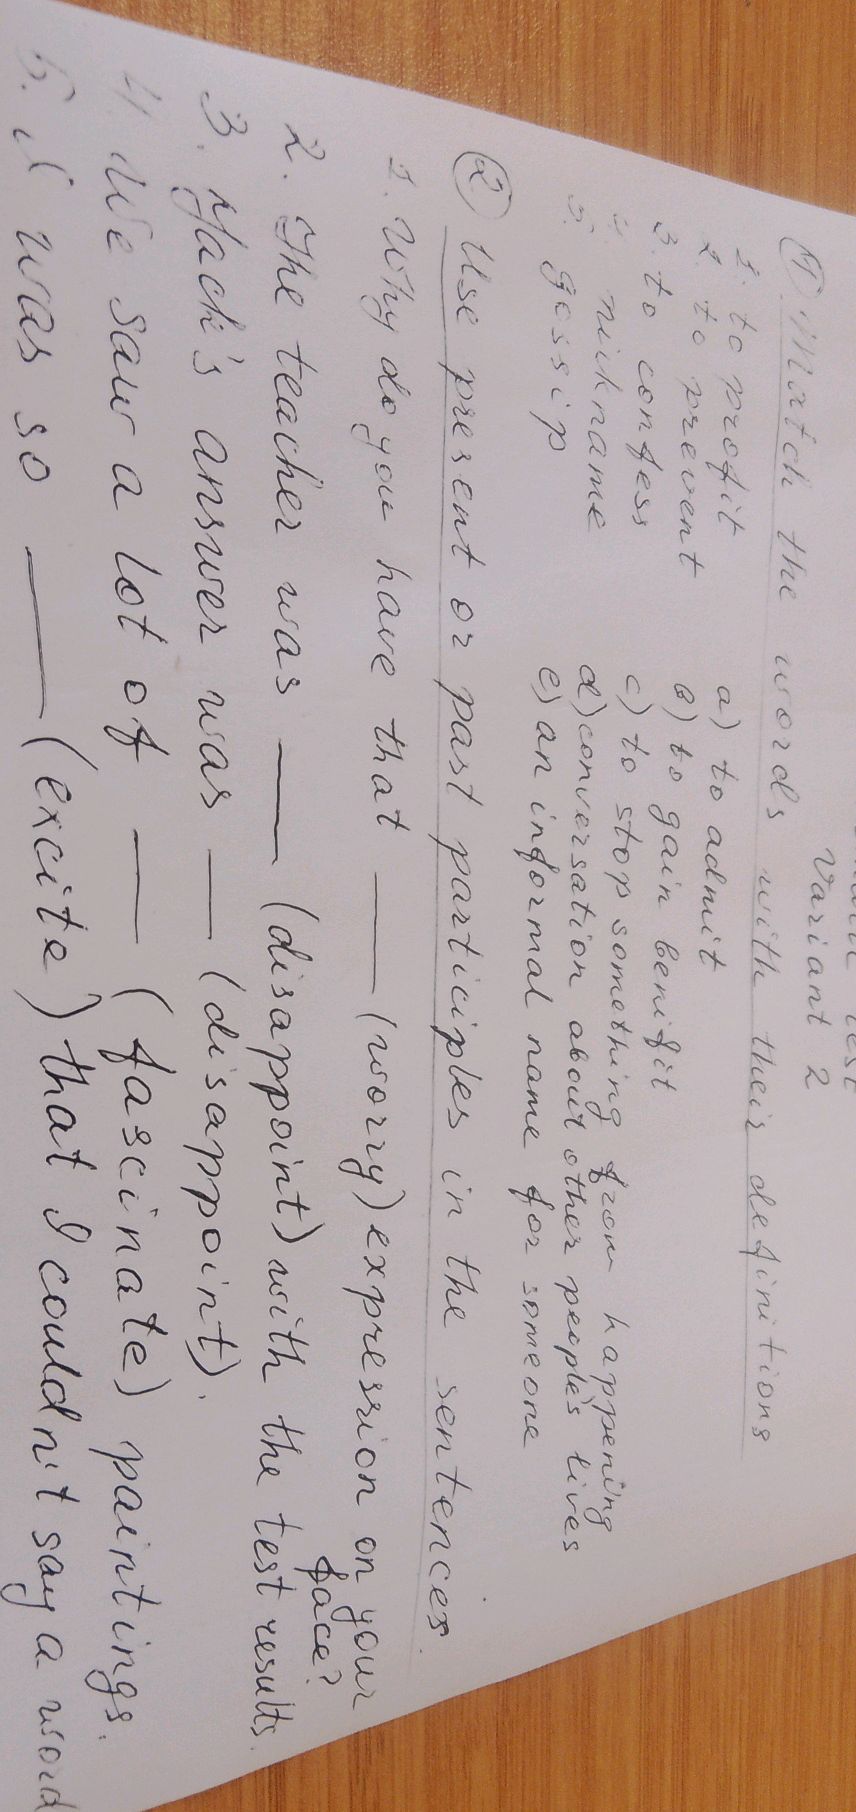 test
Variant 2
① Match the words with their definitions
1. to profit a) to admit
2. to prevent b) to gain benifit
3. to confess c) to stop something from happening
4. nickname d) conversation about other people's lives
5. gossip e) an informal name for someone
② Use present or past participles in the sentences.
1. Why do you have that ___ (worry) expression on your
face?
2. The teacher was ___ (disappoint) with the test results.
3. Jack's answer was ___ (disappoint).
4. We saw a lot of ___ (fascinate) paintings.
5. I was so ___ (excite) that I couldn't say a word